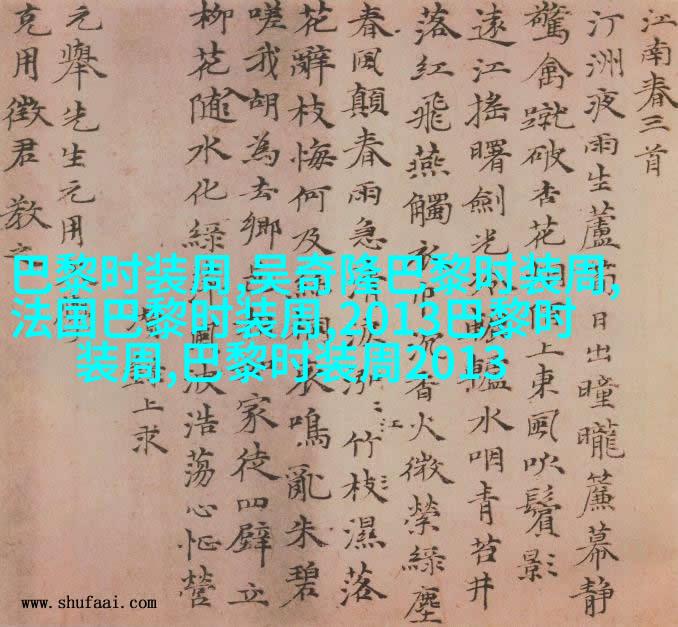 江南春三首
汀洲夜雨生蘆日出曈曨簾幕静
驚禽蹴破杏花上東風吹鬢影
遠江搖曙劍光轤水咽青苔井
落紅飛燕觸衣沉香火微縈綠塵
春風顛春雨急清泓竹枝濕落
江
花辭枝悔何及哀鳴亂朱碧
嗟我胡為去鄉家徒四壁立
柳花随水化綠風波浩蕩心怔營
上求
元舉先生元用
克用徵君教之
巴黎时装周,吴奇隆巴黎时装周,
法国巴黎时装周,2013巴黎时
装周,巴黎时装周2013
www.shufaai.com